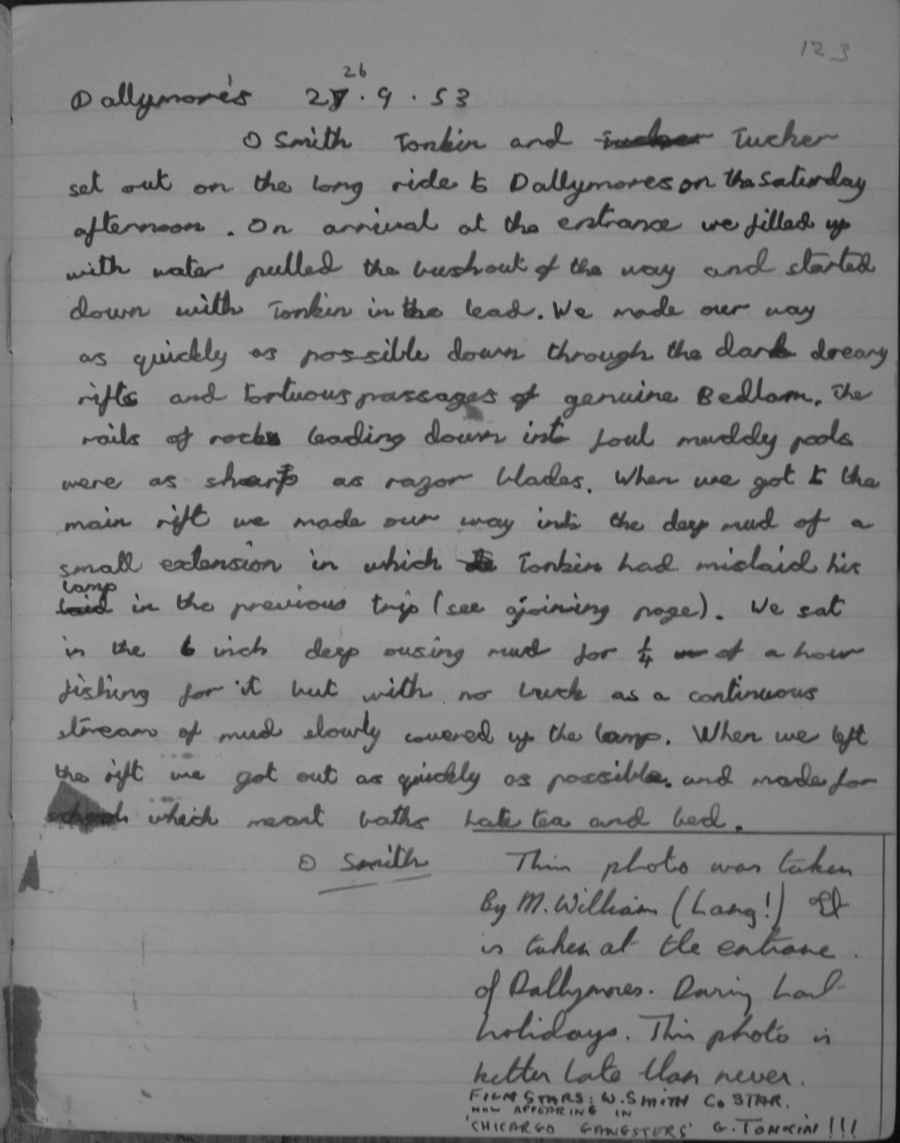 123
Dallymore's 26.9.53
O Smith Tonkin and Tucker
set out on the long ride to Dallymores on the Saturday
afternoon. On arrival at the entrance we filled up
with water pulled the bush out of the way and started
down with Tonkin in the lead. We made our way
as quickly as possible down through the dark dreary
rifts and tortuous passages of genuine Bedlam. The
rails of rocks leading down into foul muddy pools
were as sharp as razor blades. When we got to the
main rift we made our way into the deep mud of a
small extension in which Tonkin had mislaid his
lamp in the previous trip (see ajoining page). We sat
in the 6 inch deep ousing mud for 1/4 of a hour
fishing for it but with no luck as a continuous
stream of mud slowly covered up the lamp. When we left
the rift we got out as quickly as possible. and made for
which meant baths late tea and bed.
O Smith
This photo was taken
By M. William (Lang!) It
is taken at the entrane.
of Dallymores. During
holidays. This photo is
better late than never.
FILM STARS: W. SMITH Co STAR.
NOW APPEARING IN
'CHICARGO GANGSTERS' G. TONKIN!!!